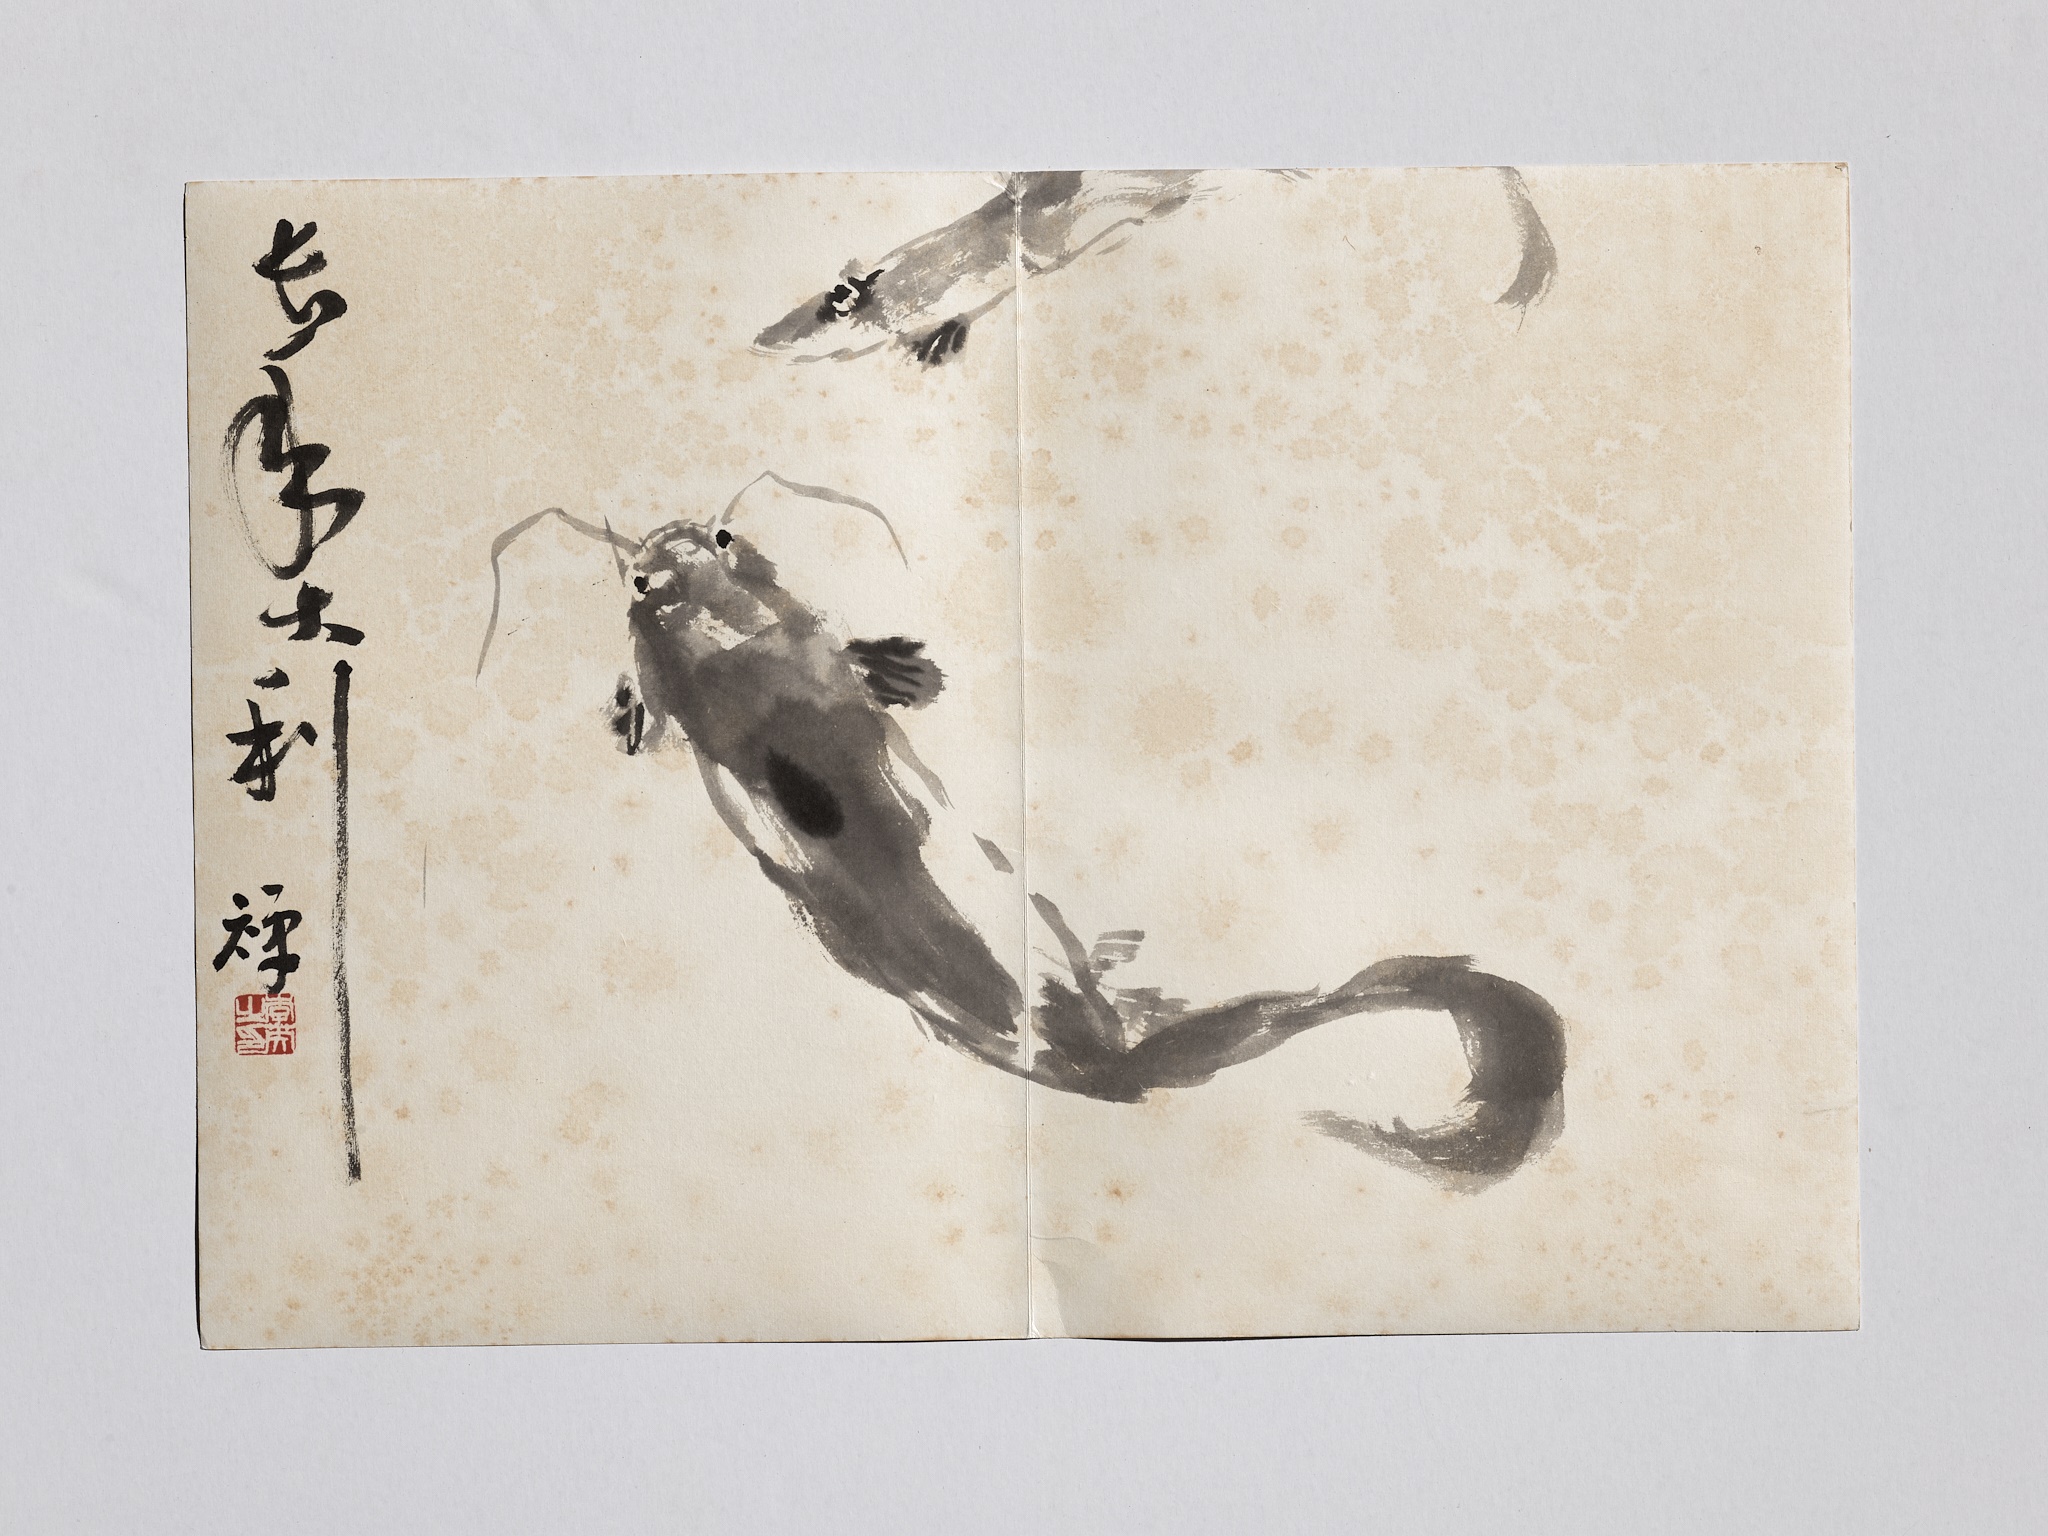 長年大利
禅